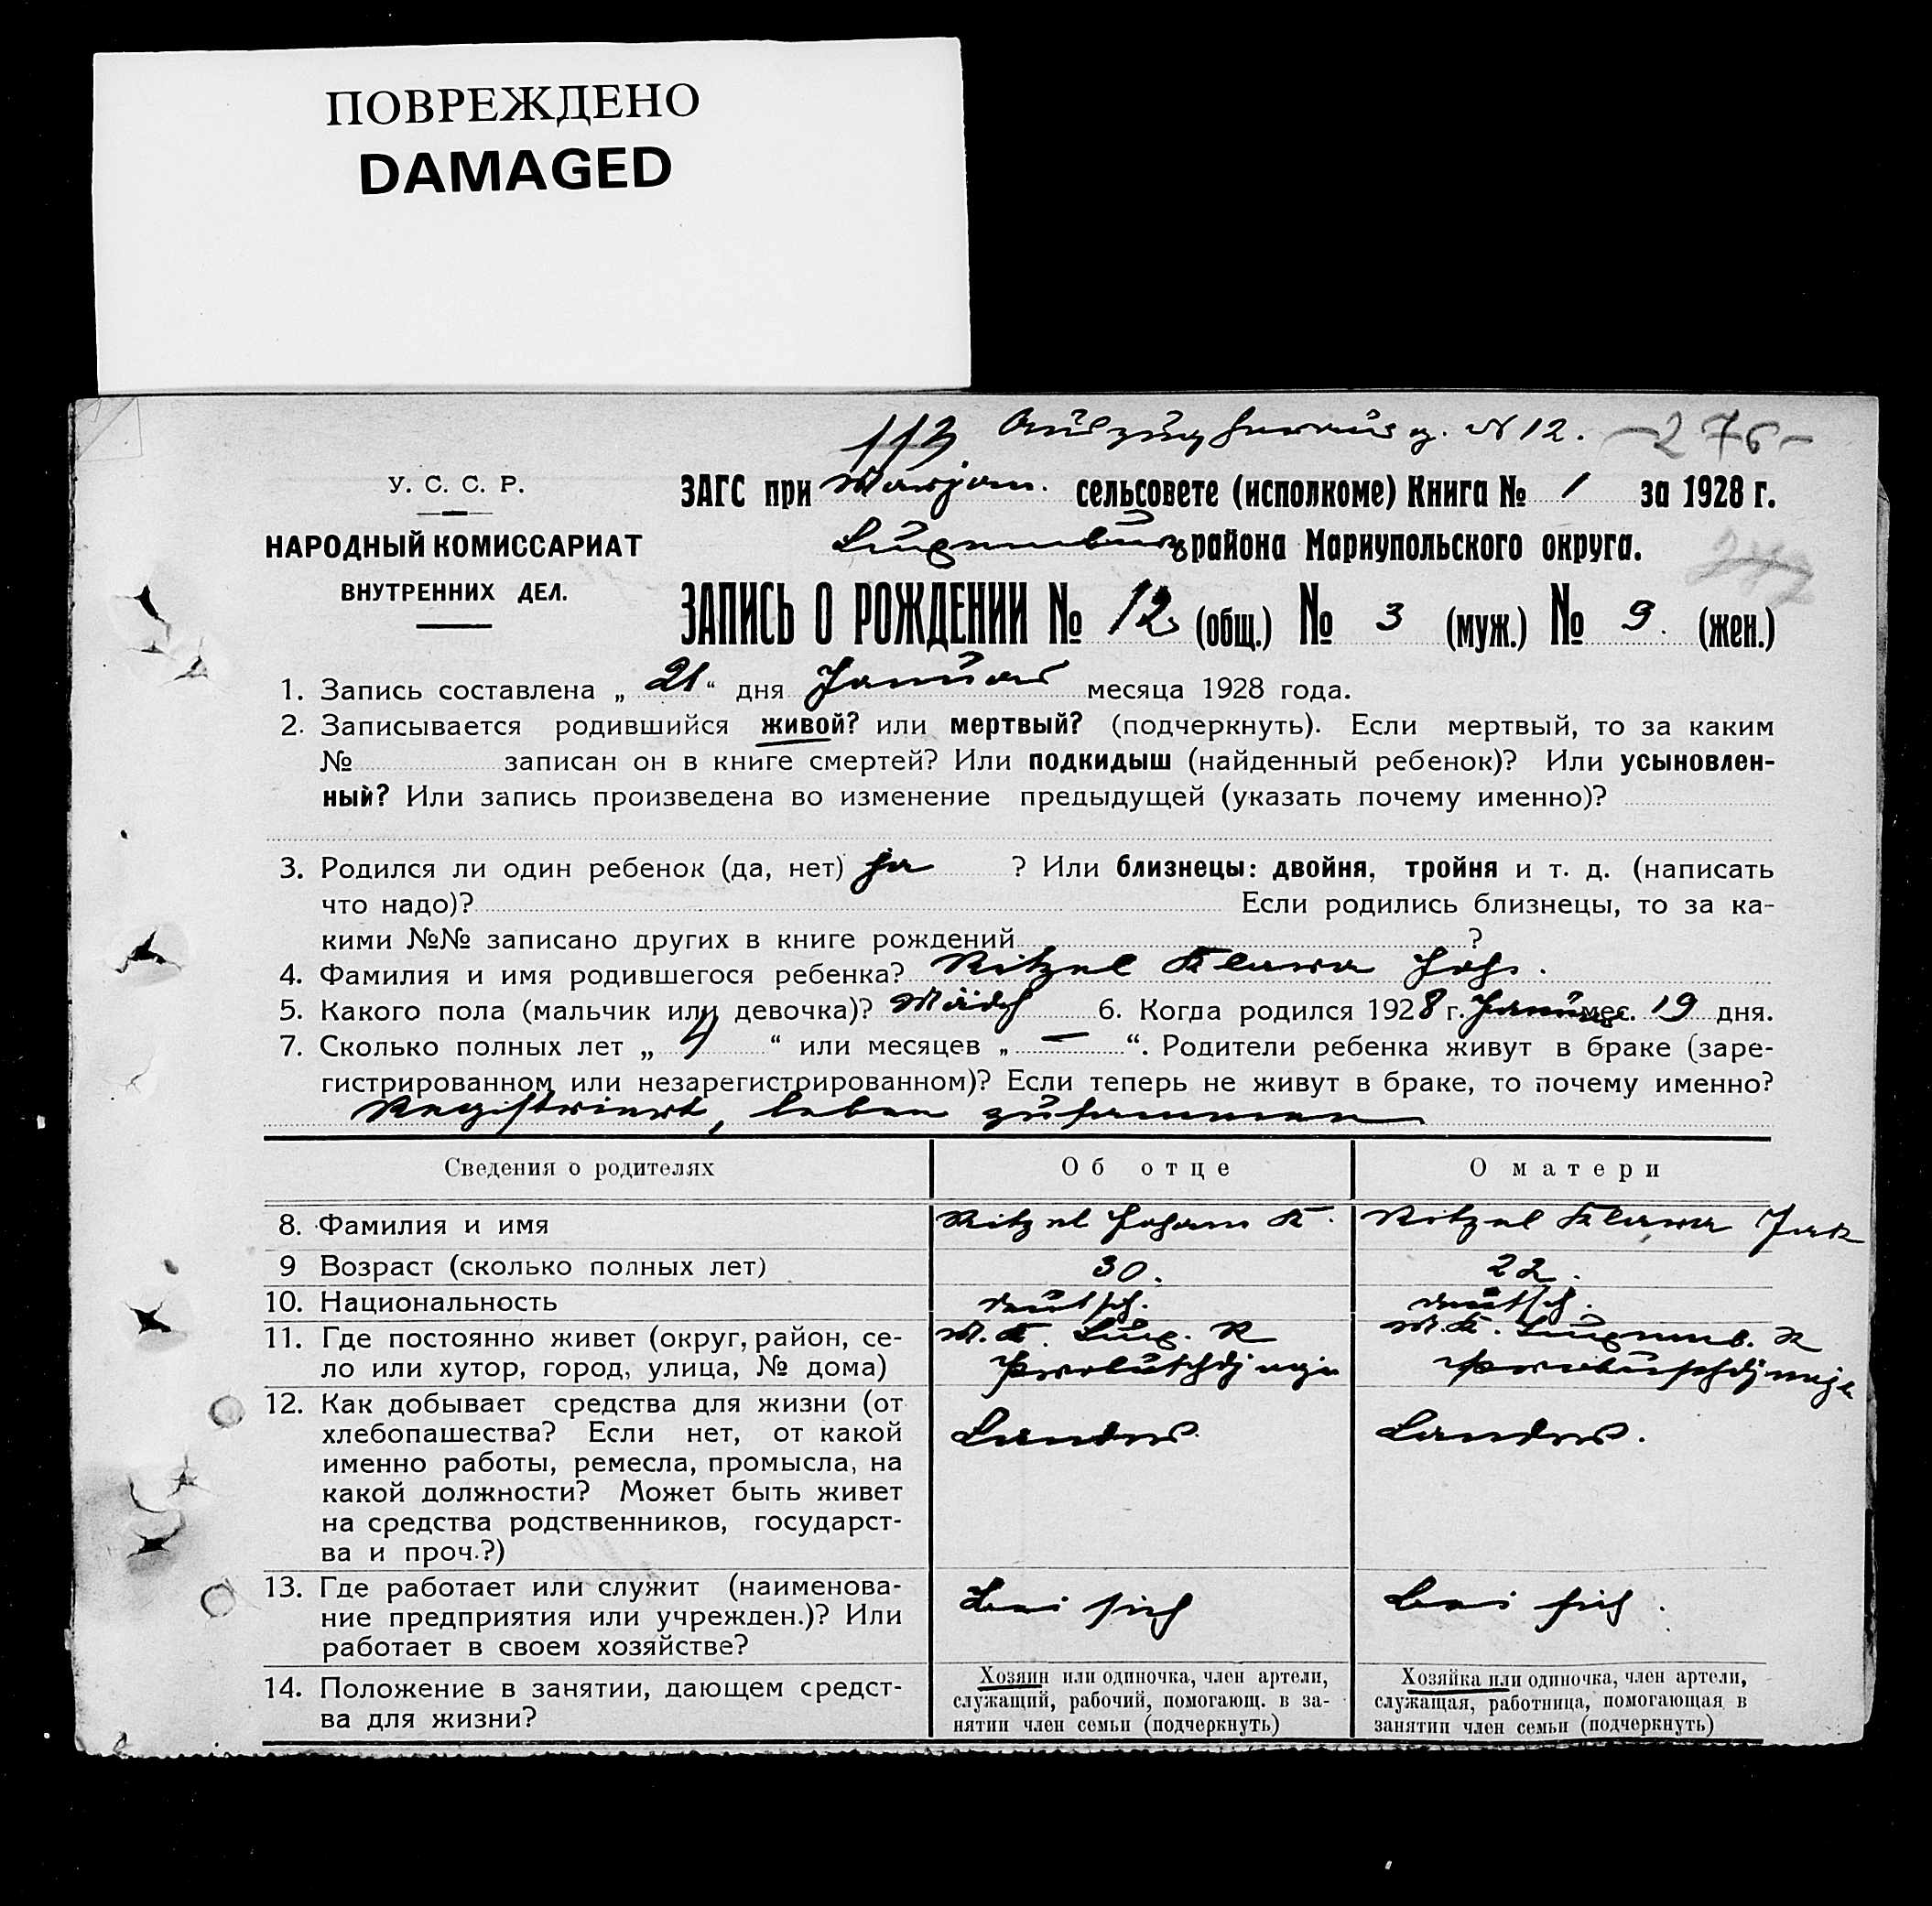 ПОВРЕЖДЕНО
DAMAGED
113 Auszug heraus g. N 12. -276-
У. С. С. Р.
НАРОДНЫЙ КОМИССАРИАТ
ВНУТРЕННИХ ДЕЛ.
ЗАГС при Marjan. сельсовете (исполкоме) Книга № 1 за 1928 г.
Luxemburg района Мариупольского округа.
ЗАПИСЬ О РОЖДЕНИИ № 12 (общ.) № 3 (муж.) № 9. (жен.)
1. Запись составлена „ 21 “ дня Januar месяца 1928 года.
2. Записывается родившийся живой? или мертвый? (подчеркнуть). Если мертвый, то за каким
№ записан он в книге смертей? Или подкидыш (найденный ребенок)? Или усыновлен-
ный? Или запись произведена во изменение предыдущей (указать почему именно)?
3. Родился ли один ребенок (да, нет) ja ? Или близнецы: двойня, тройня и т. д. (написать
что надо)? Если родились близнецы, то за ка-
кими №№ записано других в книге рождений ?
4. Фамилия и имя родившегося ребенка? Ritzel Klara Joh.
5. Какого пола (мальчик или девочка)? Mädch 6. Когда родился 1928 г. Januar мес. 19 дня.
7. Сколько полных лет „ 4 “ или месяцев „ — “. Родители ребенка живут в браке (заре-
гистрированном или незарегистрированном)? Если теперь не живут в браке, то почему именно?
Registriert, leben zusammen
Сведения о родителях Об отце О матери
8. Фамилия и имя Ritzel Johann K. Ritzel Klara Jak
9 Возраст (сколько полных лет) 30. 22.
10. Национальность deutsch. deutsch.
11. Где постоянно живет (округ, район, се- M. K. Lux. R M. K. Luxemb. R
ло или хутор, город, улица, № дома)
12. Как добывает средства для жизни (от
хлебопашества? Если нет, от какой Landw. Landw.
именно работы, ремесла, промысла, на
какой должности? Может быть живет
на средства родственников, государст-
ва и проч.?)
13. Где работает или служит (наименова- bei sich bei sich.
ние предприятия или учрежден.)? Или
работает в своем хозяйстве?
14. Положение в занятии, дающем средст-
ва для жизни?
Хозяин или одиночка, член артели,
служащий, рабочий, помогающ. в за-
нятии член семьи (подчеркнуть)
Хозяйка или одиночка, член артели,
служащая, работница, помогающая в
занятии член семьи (подчеркнуть)